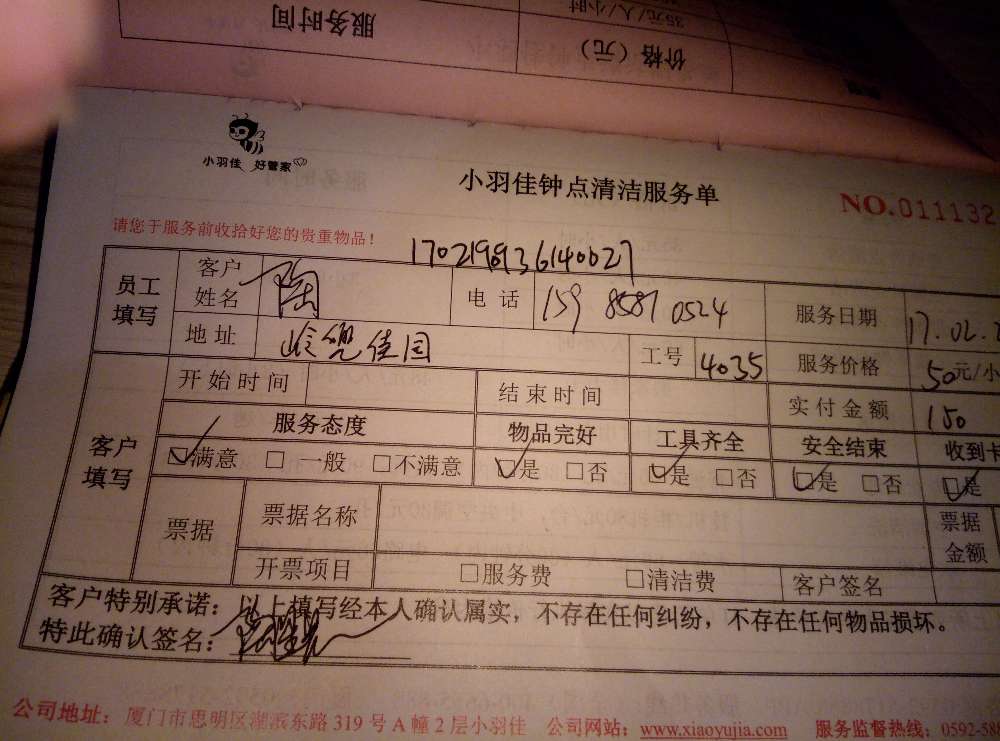 服务时间
价格（元）
35元/人/小时
小羽佳 好管家
小羽佳钟点清洁服务单
NO.011132
请您于服务前收拾好您的贵重物品！
170219936140027
员工填写 客户姓名 陶 电话 159 8587 0524 服务日期 17.02.
地址 岭兜佳园 工号 4035 服务价格 50元/小
客户填写 开始时间 结束时间 实付金额 150
服务态度 物品完好 工具齐全 安全结束 收到卡
☑满意 □一般 □不满意 ☑是 □否 ☑是 □否 ☑是 □否 ☑是
票据 票据名称 票据金额
开票项目 □服务费 □清洁费 客户签名
客户特别承诺：以上填写经本人确认属实，不存在任何纠纷，不存在任何物品损坏。
特此确认签名：
公司地址：厦门市思明区湖滨东路319号A幢2层小羽佳 公司网站：www.xiaoyujia.com 服务监督热线：0592-58